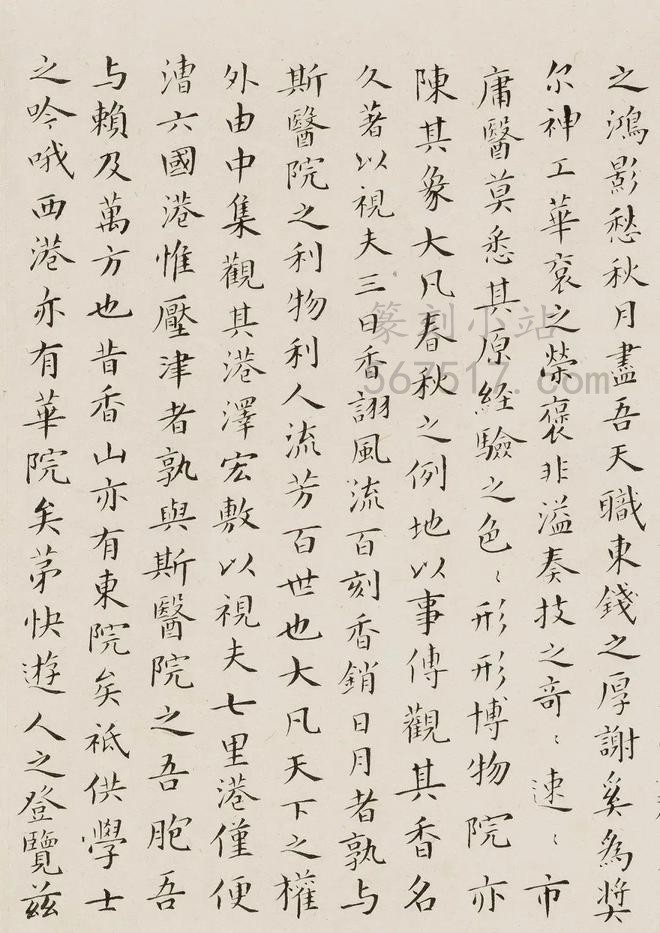 之鴻影愁秋月盡吾天職東錢之厚謝奚為獎
尔神工華衮之榮褒非溢奏技之奇〻速〻市
庸醫莫悉其原經驗之色〻形形博物院亦
陳其象大凡春秋之例地以事傳觀其香名
久著以視夫三日香詡風流百刻香銷日月者孰与
斯醫院之利物利人流芳百世也大凡天下之權
外由中集觀其港澤宏敷以視夫七里港僅便
漕六國港惟壓津者孰與斯醫院之吾胞吾
与賴及萬方也昔香山亦有東院矣祗供學士
之吟哦西港亦有華院矣苐快遊人之登覽兹
篆刻小站
367517.com